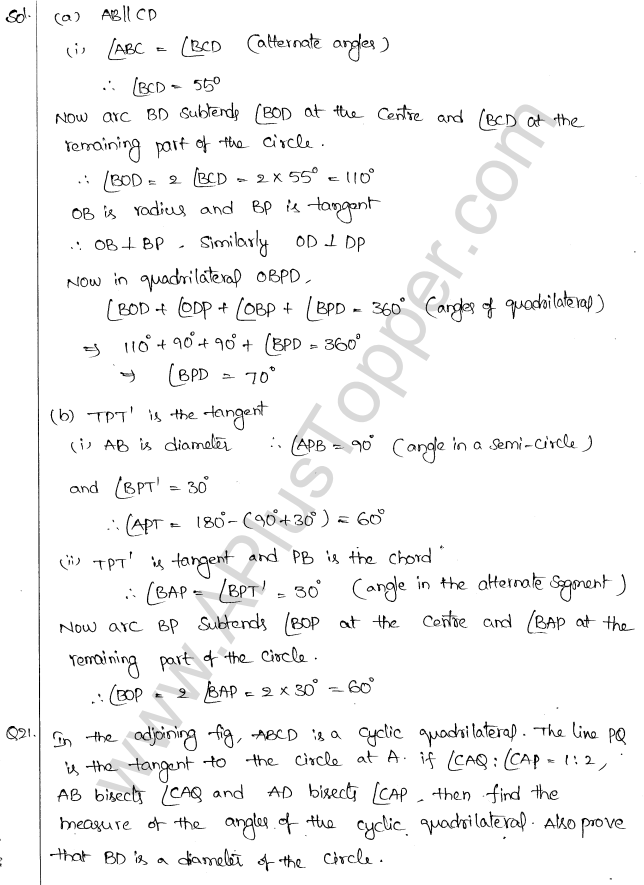 Sol. (a) AB||CD
(i) ∠ABC = ∠BCD (alternate angles)
∴ ∠BCD = 55°
Now arc BD Subtends ∠BOD at the Centre and ∠BCD at the
remaining part of the circle.
∴ ∠BOD = 2 ∠BCD = 2 × 55° = 110°
OB is radius and BP is tangent
∴ OB ⊥ BP. Similarly OD ⊥ DP
Now in quadrilateral OBPD,
∠BOD + ∠ODP + ∠OBP + ∠BPD = 360° (angles of quadrilateral)
⇒ 110° + 90° + 90° + ∠BPD = 360°
⇒ ∠BPD = 70°
(b) TPT' is the tangent
(i) AB is diameter ∴ ∠APB = 90° (angle in a semi-circle)
and ∠BPT' = 30°
∴ ∠APT = 180° - (90° + 30°) = 60°
(ii) TPT' is tangent and PB is the chord
∴ ∠BAP = ∠BPT' = 30° (angle in the alternate Segment)
Now arc BP Subtends ∠BOP at the Centre and ∠BAP at the
remaining part of the circle.
∴ ∠BOP = 2 ∠BAP = 2 × 30° = 60°
Q21. In the adjoining fig, ABCD is a cyclic quadrilateral. The line PQ
is the tangent to the circle at A. if ∠CAQ : ∠CAP = 1:2,
AB bisects ∠CAQ and AD bisects ∠CAP, then find the
measure of the angles of the cyclic quadrilateral. Also prove
that BD is a diameter of the circle.
www.APlusTopper.com